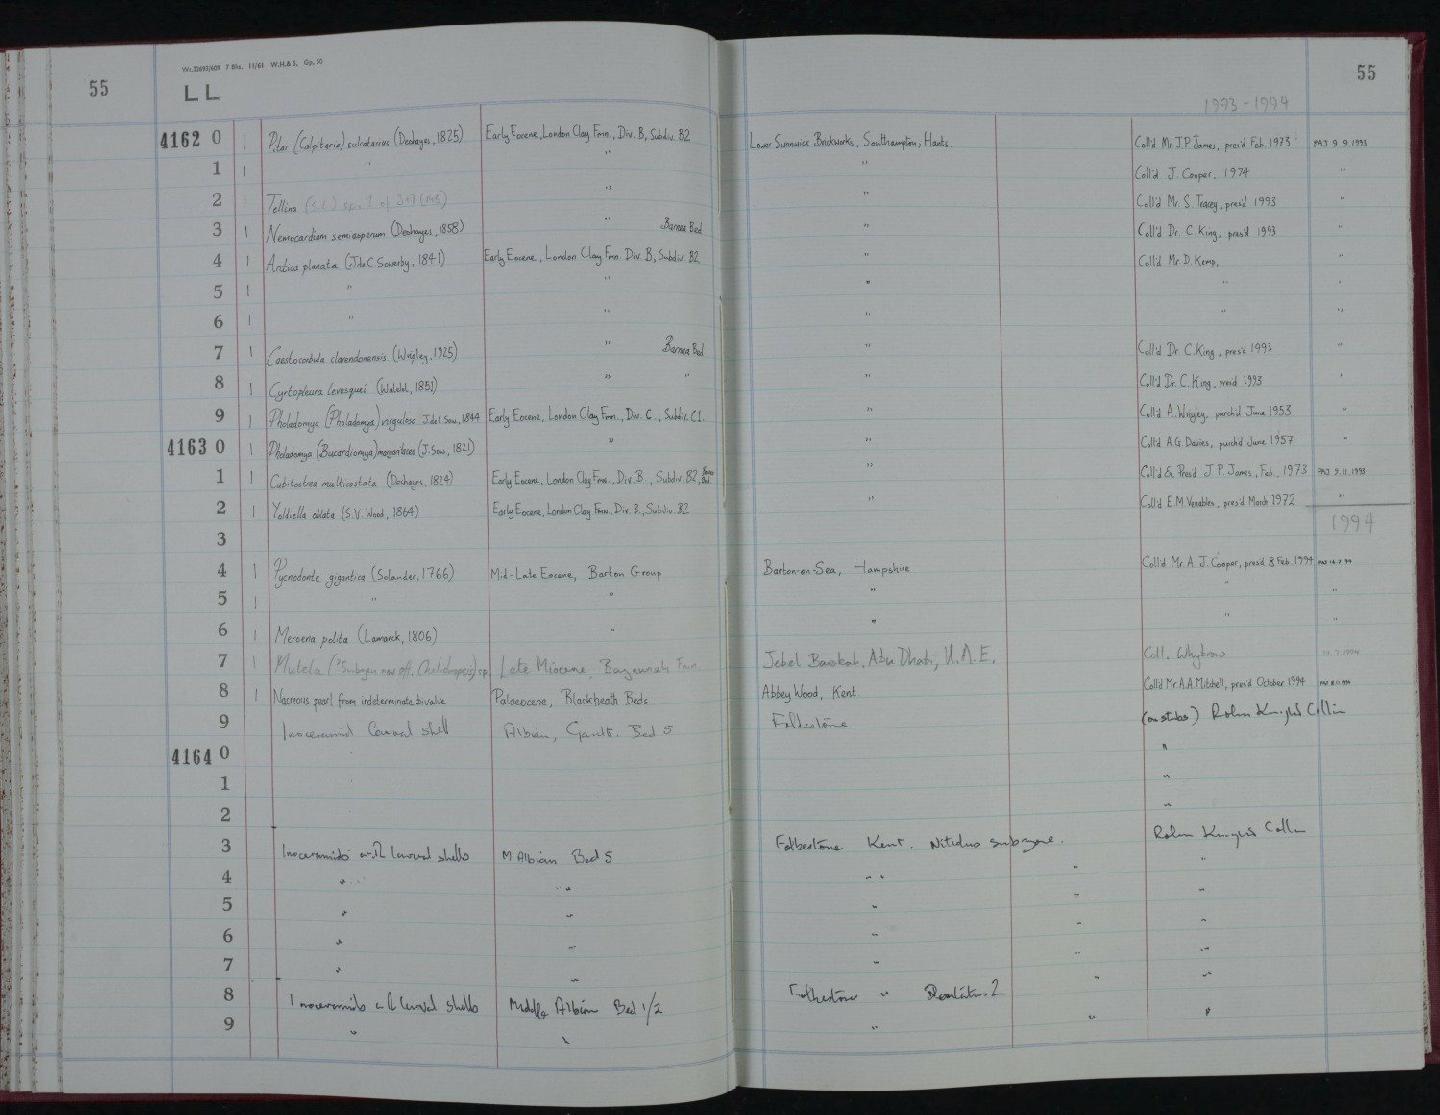 55
Wt.
7 Bks. 11/61 W.H.&S. Gp.
LL
55
1993-1994
4162 0 Pitar (Calpitaria) sulcatarius (Deshayes, 1825) Early Eocene, London Clay Fmn., Div. B, Subdiv. B2 Lower Swanwick Brickworks, Southampton, Hants. Coll'd Mr. J.P. James, pres'd Feb. 1973 PAJ 9.9.1993
1 1 " " " Coll'd J. Cooper, 1974 "
2 Tellina " " Coll'd Mr. S. Tracey, pres'd 1993 "
3 1 Nemocardium semiasperum (Deshayes, 1858) " Barnea Bed " Coll'd Dr. C. King, pres'd 1993 "
4 1 Arctica planata (J. de C. Sowerby, 1841) Early Eocene, London Clay Fmn. Div. B, Subdiv. B2 " Coll'd Mr. D. Kemp. "
5 1 " " " " "
6 1 " " " " "
7 1 Caestocorbula clarendonensis (Wrigley, 1925) " Barnea Bed " Coll'd Dr. C. King, pres'd 1993 "
8 1 Cyrtopleura levesquei (Watelet, 1851) " " " Coll'd Dr. C. King, pres'd 1993 "
9 1 Pholadomya (Pholadomya) virgulosa J. de C. Sow., 1844 Early Eocene, London Clay Fmn., Div. C., Subdiv. C1. " Coll'd A. Wrigley, purch'd June 1953 "
4163 0 1 Pholadomya (Bucardiomya) margaritacea (J. Sow., 1821) " " Coll'd A.G. Davies, purch'd June 1957 "
1 1 Cubitostrea multicostata (Deshayes, 1824) Early Eocene, London Clay Fmn., Div. B., Subdiv. B2, Barnea Bed " Coll'd & Pres'd J.P. James, Feb. 1973 PAJ 9.11.1993
2 1 Yoldiella oblata (S.V. Wood, 1864) Early Eocene, London Clay Fmn. Div. B., Subdiv. B2 " Coll'd E.M. Venables, pres'd March 1972 "
1994
3
4 1 Pycnodonte gigantica (Solander, 1766) Mid-Late Eocene, Barton Group Barton-on-Sea, Hampshire Coll'd Mr. A. J. Cooper, pres'd 8 Feb. 1994
5 1 " " " " "
6 1 Meroena polita (Lamarck, 1806) " " " "
7 1 Mutela Late Miocene, Baynunah Fmn. Jebel Barakah, Abu Dhabi, U.A.E. Coll. Whybrow
8 1 Nacreous pearl from indeterminate bivalve Palaeocene, Blackheath Beds Abbey Wood, Kent Coll'd Mr A.A. Mitchell, pres'd October 1994
9 Inoceramid larval shell Albian, Gault. Bed 5 Folkestone (on stubs) Robin Knight Coll'n
4164 0 "
1 "
2 "
3 Inoceramids with larval shells M Albian Bed 5 Folkestone Kent. Nitidus subzone. Robin Knight Colln
4 " " " " " "
5 " " " " "
6 " " " " "
7 " " " " "
8 Inoceramids with larval shells Middle Albian Bed 1/2 Folkestone " " "
9 " " " " "